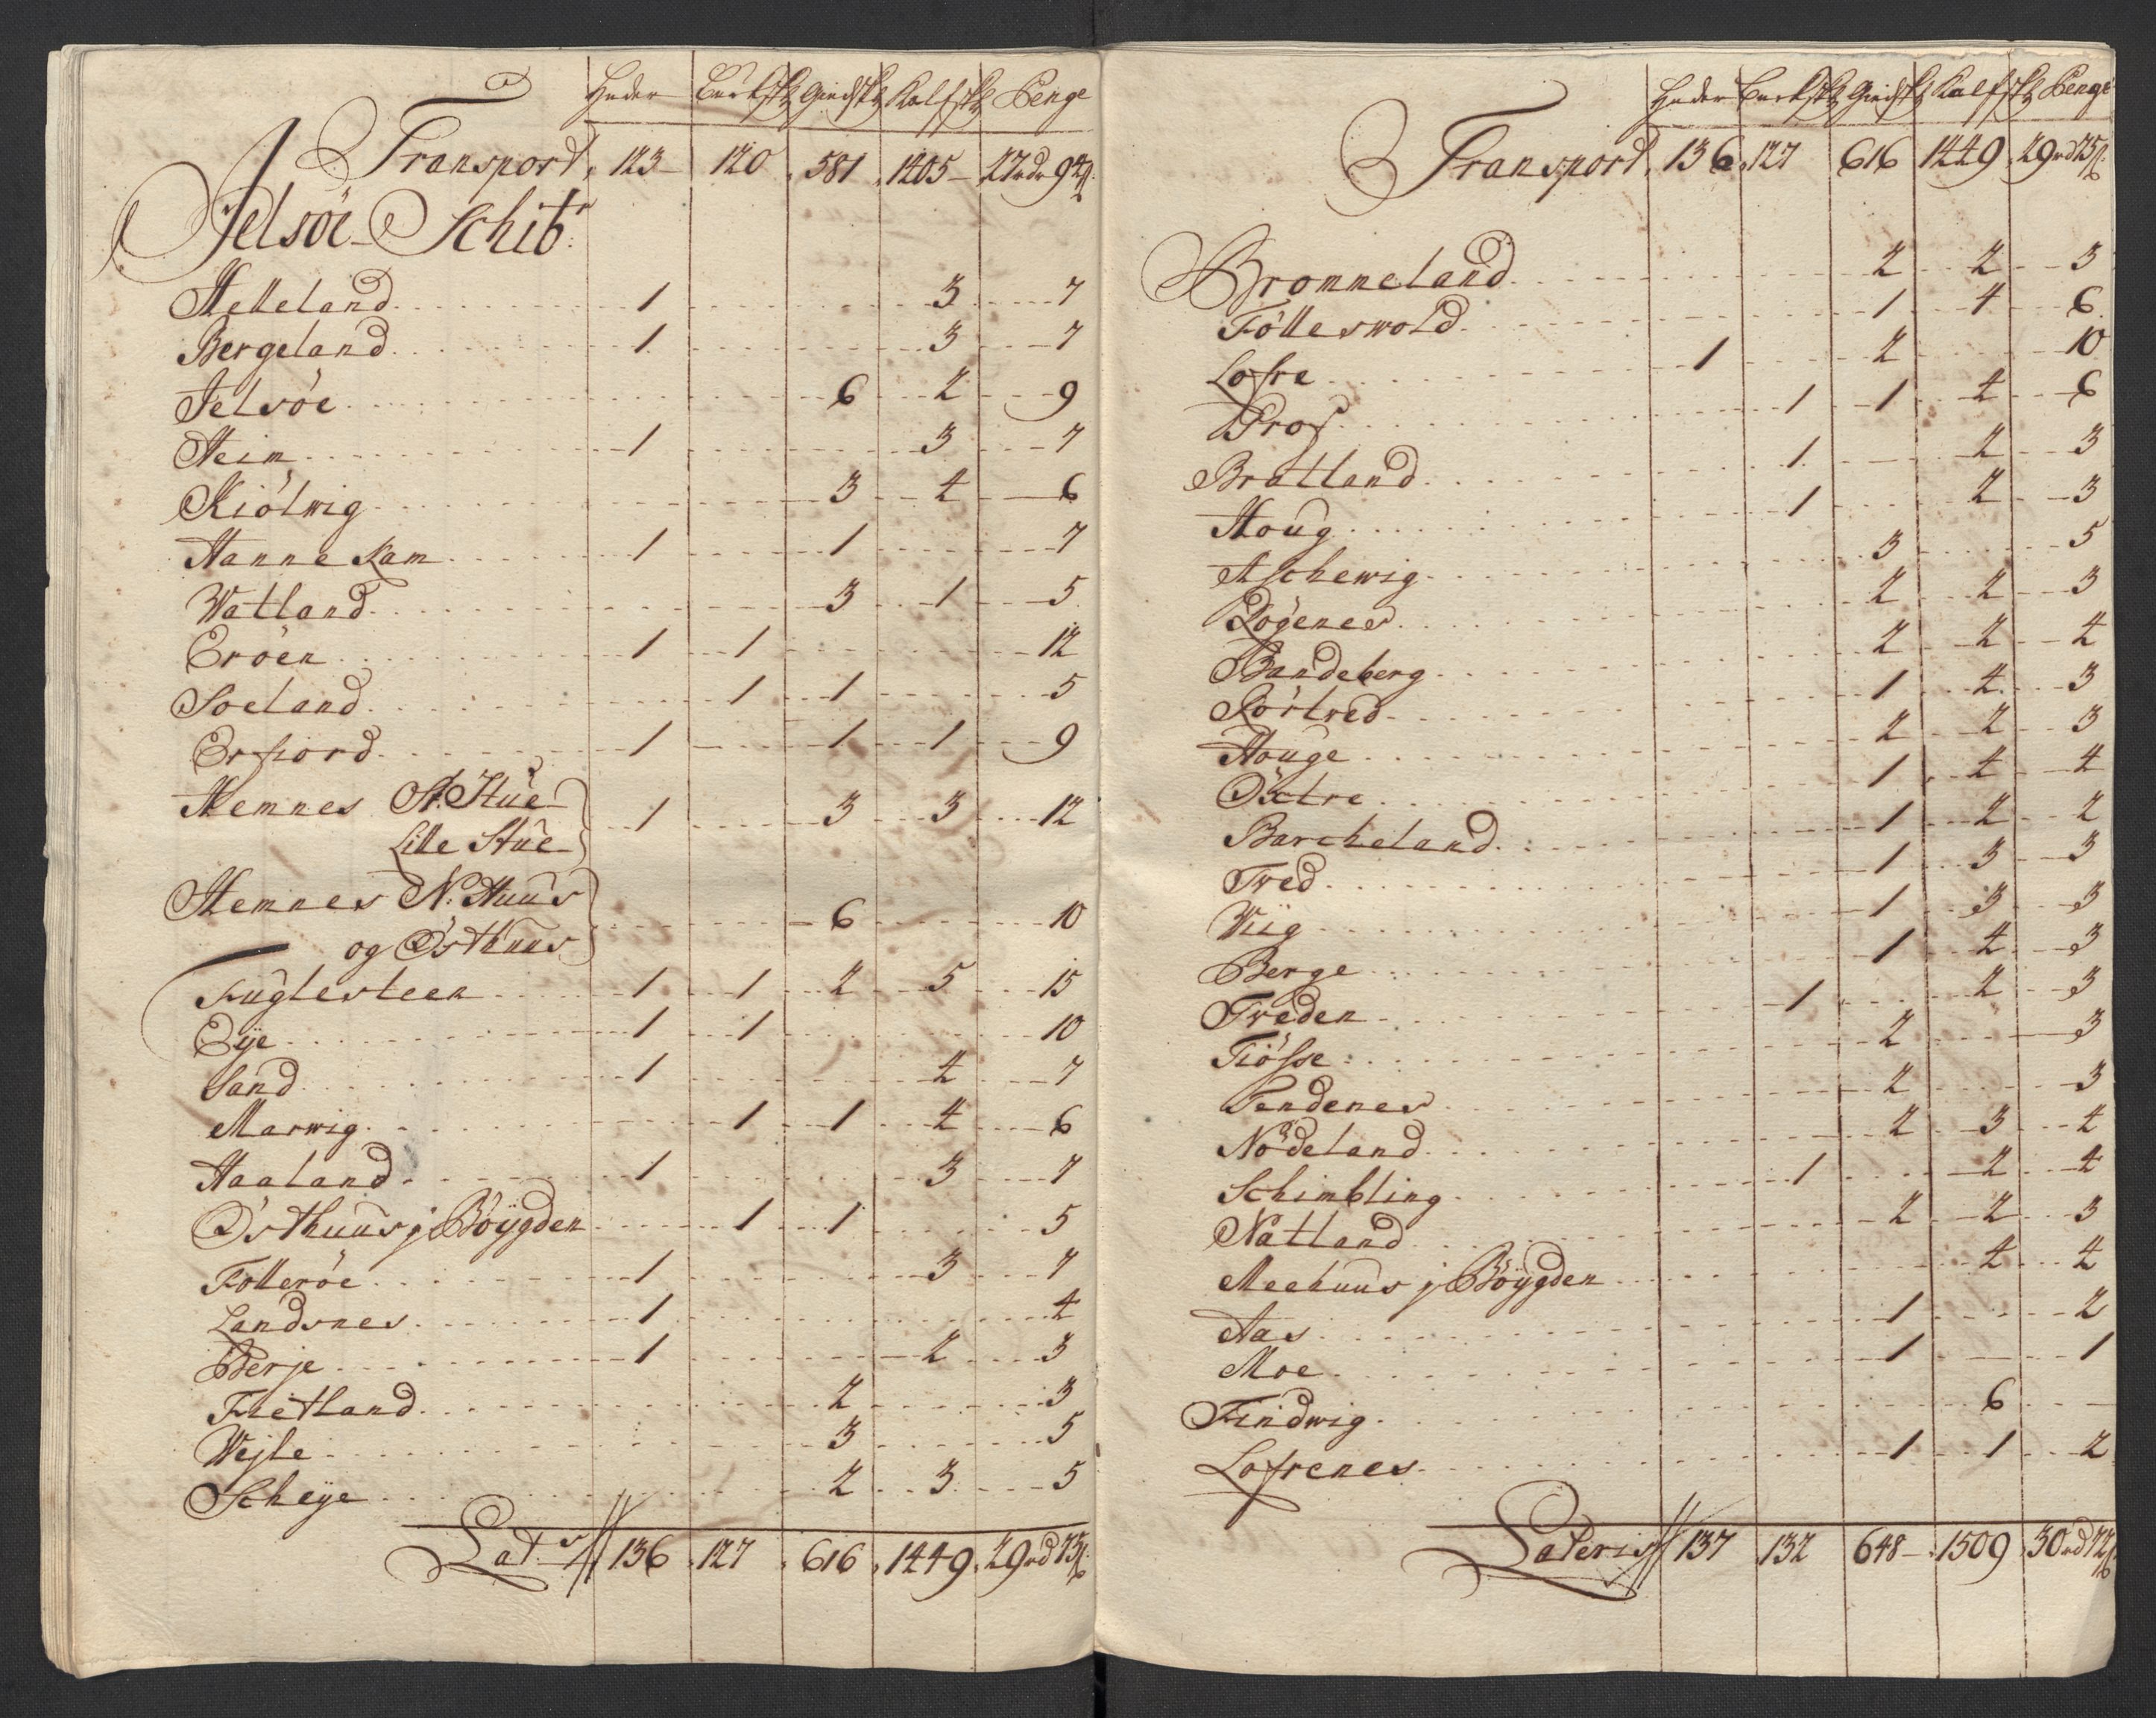 Huder Bucksk: Giedsk: Kalfsk: Penge
Transport, 123 - 120 581 1405 - 27 rdr 94 ß
Jelsöe Schib:
Helleland 1 3 7
Bergeland 1 3 7
Jelsöe 6 2 9
Heim 1 3 7
Kiölwig 3 4 6
Hanne Kam 1 1 7
Watland 3 1 5
Eröen 1 1 12
Soeland 1 1 5
Erfiord 1 1 1 9
Hemnes St. Stue
Lille Stue 1 3 3 12
Hemnes N: Huus
og Östhuus 6 10
Fuglesteen 1 1 2 5 15
Eÿe 1 1 10
Sand 1 4 7
Marwig 1 1 4 6
Haaland 1 3 7
Östhuus j Böÿgden 1 1 5
Folleröe 1 3 7
Landsnes 1 4
Berje 1 2 3
Fietland 2 3
Wejle 3 5
Scheÿe 2 3 5
Lat:s 136 127 616 1449 29 rd 73 ß
Huder Bucksk: Giedsk: Kalfsk: Penge
Transport, 136 127 616 1449 29 rd 73 ß
Bronneland 2 2 3
Fölleswold 1 4 6
Lofre 1 2 10
Prof 1 1 4 6
Bratland 1 2 3
Houg 1 2 3
Aschewig 3 5
Rögenes 2 2 3
Bandeberg 2 2 4
Körtved 1 4 3
Houge 2 2 3
Östre 1 4 4
Barcheland 1 2 2
Tved 1 3 3
Wiig 1 3 3
Berge 1 4 3
Tveden 1 2 3
Tiösse 2 3
Tendenes 2 3
Nödeland 2 3 4
Schimbling 1 2 4
Natland 2 2 3
Meehuus j Böÿgden 4 4
Aas 1 2
Moe 1 1
Findwig 6 -
Lofrenes 1 1 2
Lateris 137 132 648 - 1509 30 rd 72 ß